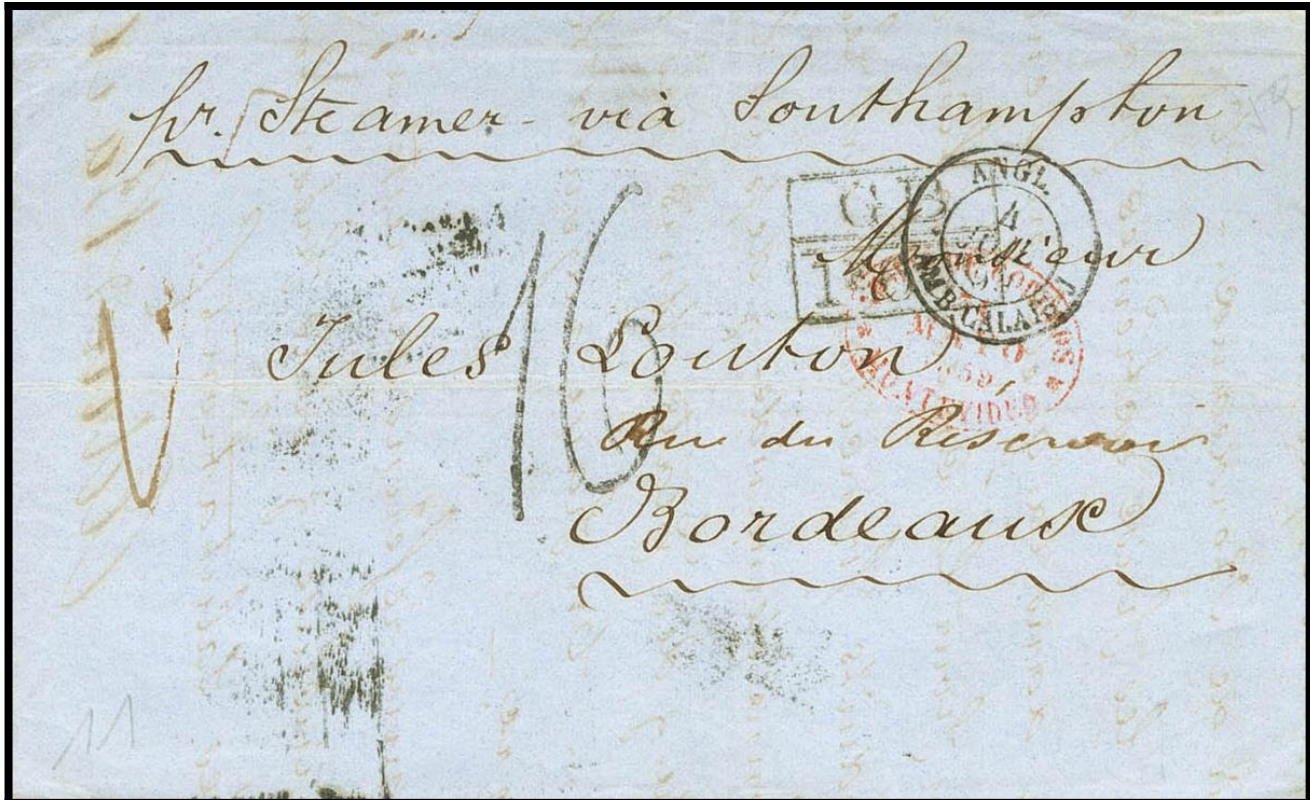 pr. Steamer via Southampton
GB
1
ANGL.
4
AMB. CALAIS
Monsieur
Jules Louton,
16
MONTEVIDEO
Rue du Reservoir
Bordeaux
11